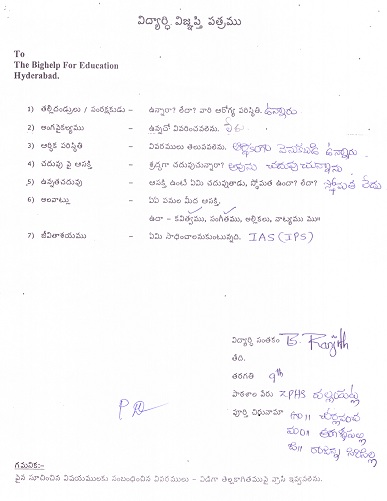 విద్యార్ధి విజ్ఞప్తి పత్రము
To
The Bighelp For Education
Hyderabad.
1) తల్లిదండ్రులు / సంరక్షకుడు - ఉన్నారా? లేదా? వారి ఆరోగ్య పరిస్థితి. ఉన్నారు
2) అంగవైకల్యము - ఉన్నచో వివరించవలెను. లేదు
3) ఆర్థిక పరిస్థితి - వివరములు తెలుపవలెను. ఉన్నారు
4) చదువు పై ఆసక్తి - శ్రద్ధగా చదువుచున్నారా? అవును చదువుచున్నాను
5) ఉన్నతచదువు - ఆసక్తి ఉంటే ఏమి చదువుతాడు, స్తోమత ఉందా? లేదా? స్తోమత లేదు
6) అలవాట్లు - ఏఏ పనుల మీద ఆసక్తి.
ఉదా - కవిత్వము, సంగీతము, అల్లికలు, నాట్యము మొ॥
7) జీవితాశయము - ఏమి సాధించాలనుకుంటున్నది. IAS (IPS)
విద్యార్ధి సంతకం B. Ranjith
తేది.
తరగతి 9th
పాఠశాల పేరు ZPHS
పూర్తి చిరునామా
గమనిక:-
పైన సూచించిన విషయములకు సంబంధించిన వివరములు - విడిగా తెల్లకాగితముపై వ్రాసి ఇవ్వవలెను.